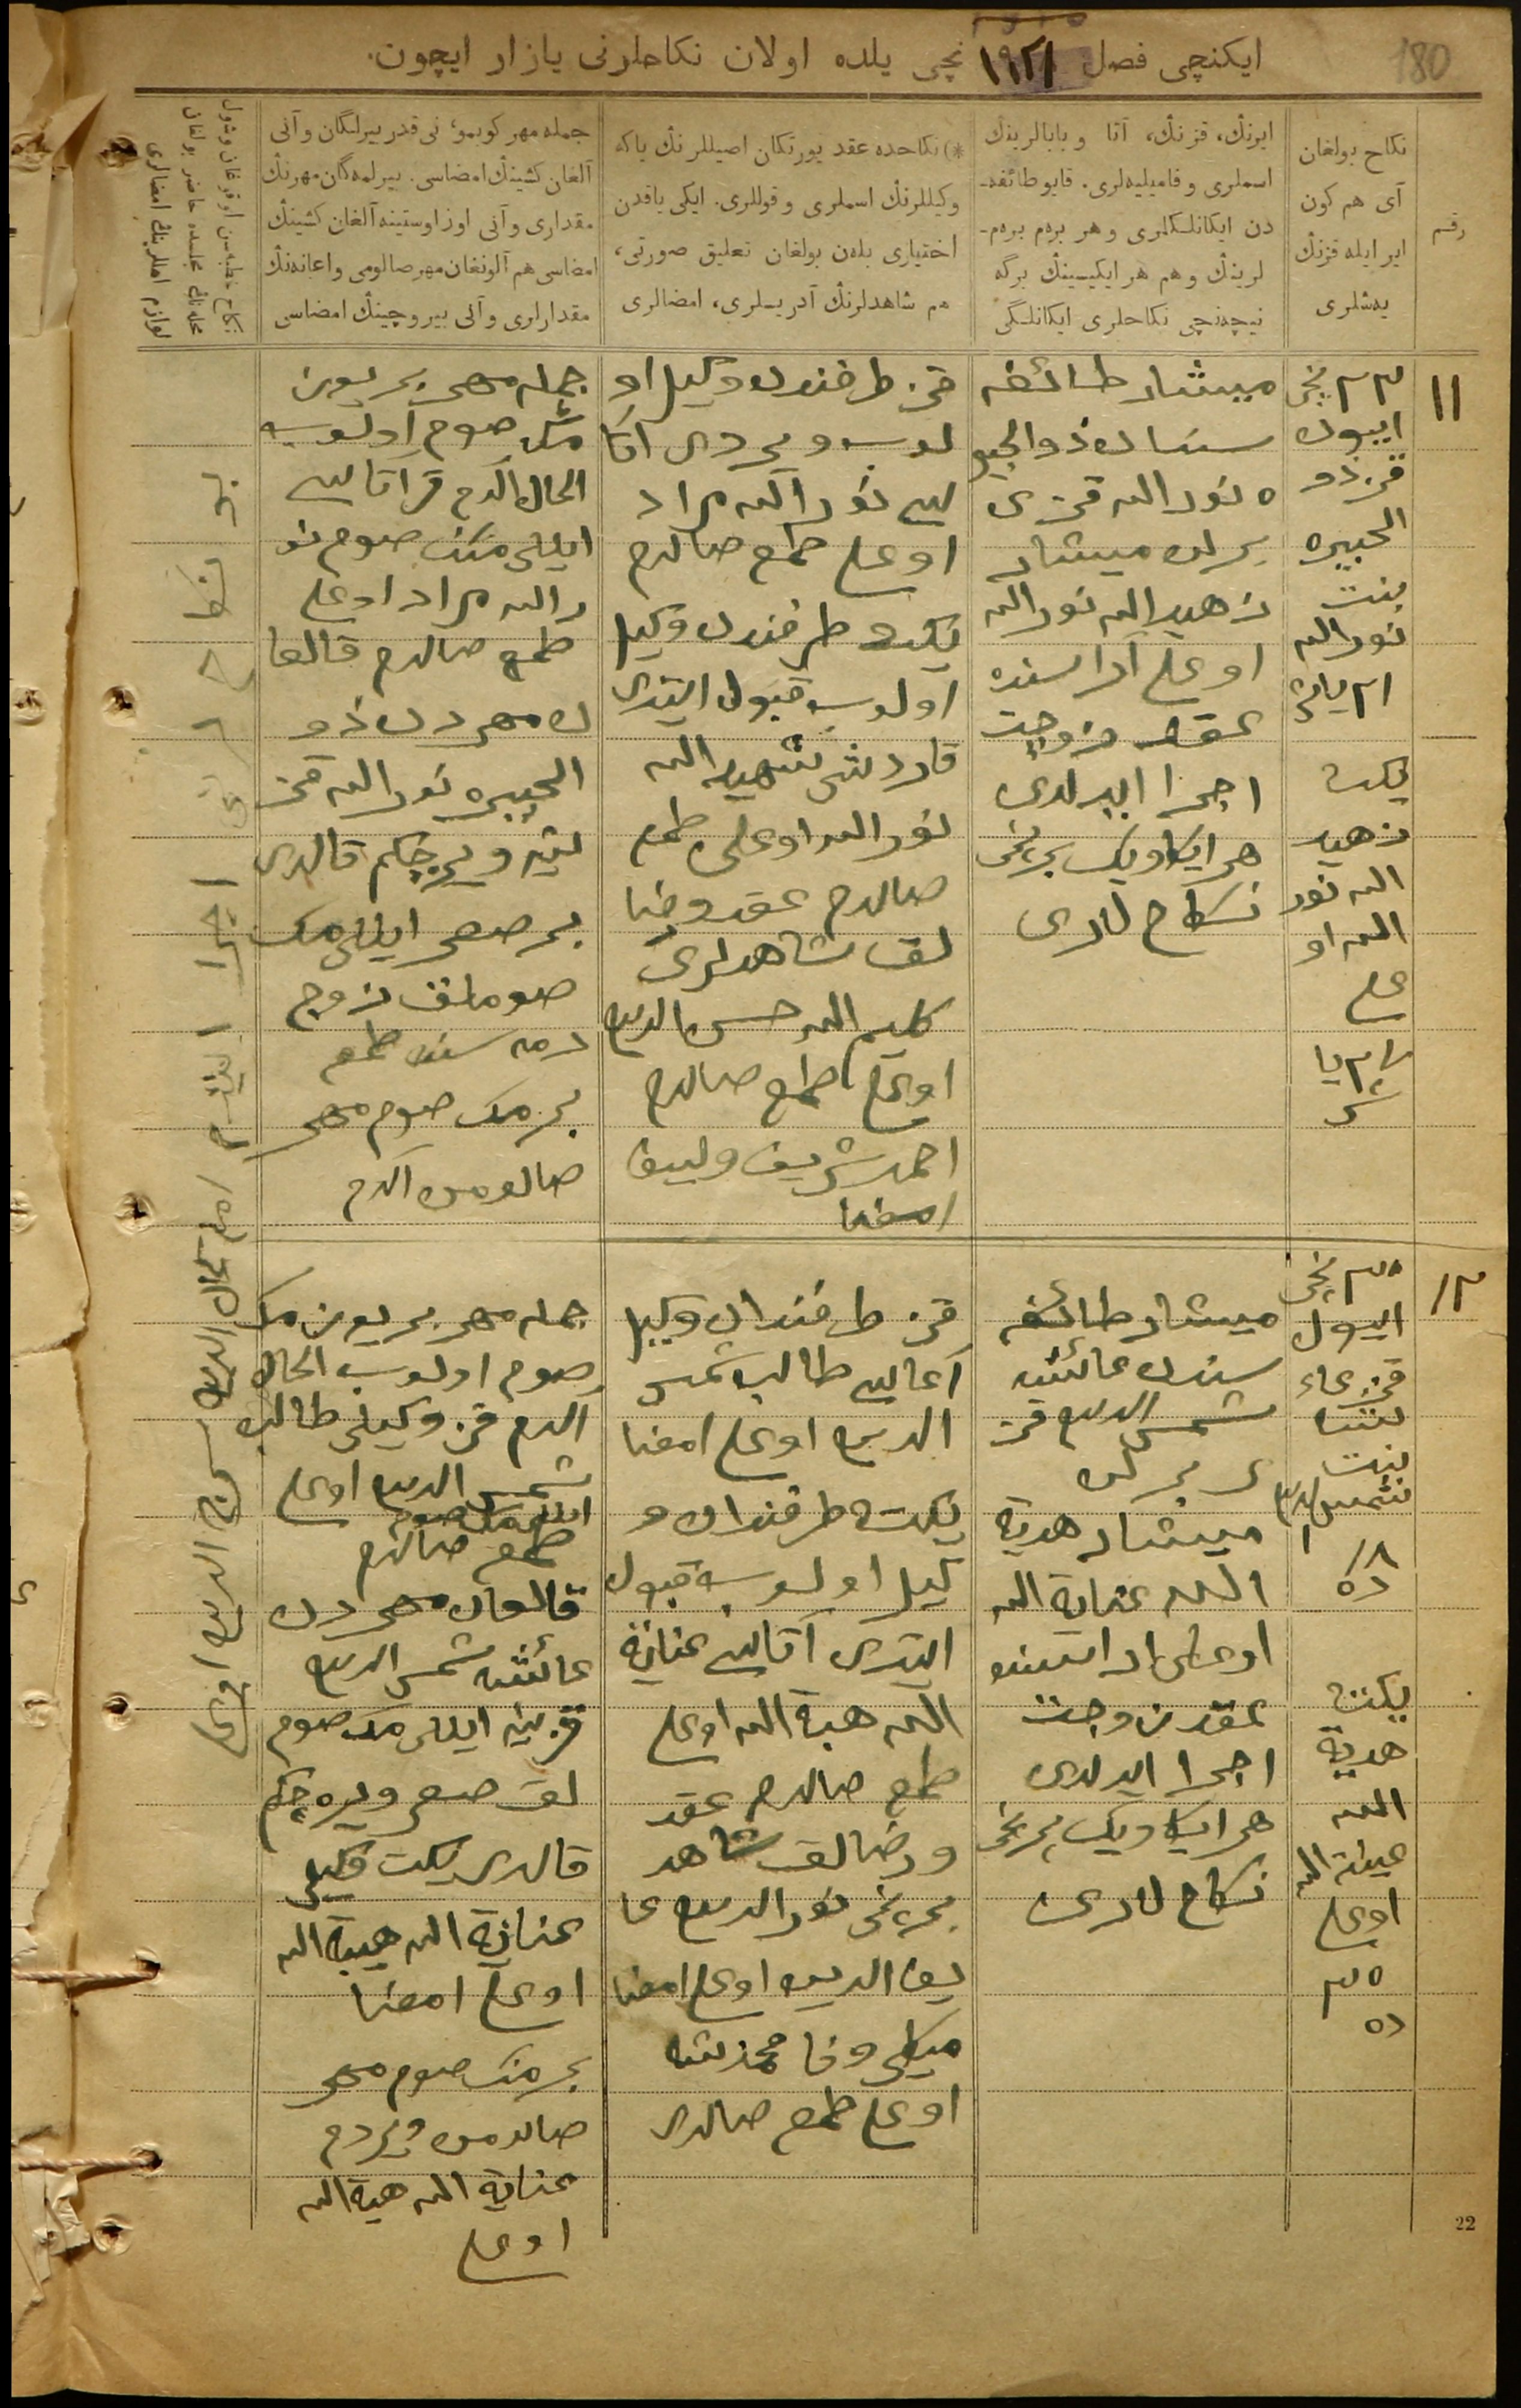 180
ایکنچی فصل ۱۹۲۱ نچی یلده اولان نکاحلرنی یازار ایچون.
رقم
نکاح بولغان
آی هم کون
ایر ایله قزنڭ
یەشلری
ایرنڭ، قزنڭ، آتا و بابالرینڭ
اسملری و فامیلیەلری. قایو طائفه‌-
دن ایکانلکلری و هر برەم برەم-
لرینڭ و هم هر ایکیسینڭ برگە
نیچەنچی نکاحلری ایکانلگی
*) نکاحده عقد یورتکان اصیللرنڭ یاکە
وکیللرنڭ اسملری و قوللری. ایکی یاقدن
اختیاری بلەن بولغان تعلیق صورتی،
هم شاهدلرنڭ آدریسلری، امضالری
جمله مهر کوبمو، نی قدر بیرلگان و آنی
آلغان کشینڭ امضاسی. بیرلمەگان مهرنڭ
مقداری و آنی اوز اوستینه آلغان کشینڭ
امضاسی هم آلونغان مهر صالومی و اعانەنڭ
مقدارلری و آنی بیروچینڭ امضاسی
نکاح خطبەسن اوقوغان و شول
محلەنڭ مجلسده حاضر بولغان
لوازم اهللرینڭ امضالری
۱۱
۲۲ نچی
اییون
قز ذو
الحبیره
بنت
نورالله
۲۱ یاش
یکت
زهید
الله نور
الله او
غلی
میشار طائفه
سندن ذوالحبیر
ه نورالله قزی
برلن میشار
زهیدالله نورالله
اوغلی آراسنده
عقد زوجیت
اجرا ایدلدی
هر ایکاویک برنچی
نکاح لاری
قز طرفندن وکیل او
لوب ویردی آتا
سی نورالله مراد
اوغلی طمغ صالدم
یکت طرفندن وکیل
اولوب قبول ایتدی
قارداشی شهیدالله
نورالله اوغلی طمغ
صالدم عقد و رضا
لق شاهدلری
کلیم الله حسن الدین
اوغلی طمغ صالدم
احمد شریف ولییف
امضا
جمله مهر بر یوز
مڭ صوم اولوب
الحال آلدم قز آتاسی
ایللی مڭ صوم نو
رالله مراد اوغلی
طمغ صالدم قالغا
ن مهردن ذو
الحبیره نورالله قز
ینه ویرەچکم قالدی
بر صغر ایللی مڭ
صوملق زوج
طمغ
بر مڭ صوم مهر
صالومن آلدم
بو نکاحلرنی اجرا ایتدم امام جمال الدین سراج الدین اوغلی
۱۲
۲۵ نچی
اییول
قز عاء
ئشه
بنت
شمس الدین
۱۸
ده
یکت
هدیة
الله
عنایة الله
اوغلی
۲۵
ده
میشار طائفه
سندن عائشه
شمس الدین قز
ی برلن
میشار هدیة
الله عنایة الله
اوغلی اراسنده
عقد زوجیت
اجرا ایدلدی
هر ایکاویک برنچی
نکاح لاری
قز طرفندان وکیل
آغاسی طالب شمس
الدین اوغلی امضا
یکت طرفندان و
کیل اولوب قبول
ایتدی آتاسی عنایة
الله هبة الله اوغلی
طمغ صالدم عقد
و رضالق شاهد
برنچی نورالدین عا
الدین اوغلی امضا
اوغلی طمغ صالدی
جمله مهر بر یوز مڭ
صوم اولوب الحال
الدم قز وکیلی طالب
شمس الدین اوغلی
ایللی مڭ صوم
طمغ صالدم
قالغان مهردن
عائشه شمس الدین
قزینه ایللی مڭ صوم
لق صغر ویرەچکم
قالدی یکت وکیلی
عنایة الله هبة الله
اوغلی امضا
بر مڭ صوم مهر
صالومن ویردم
عنایة الله هبة الله
اوغلی
22